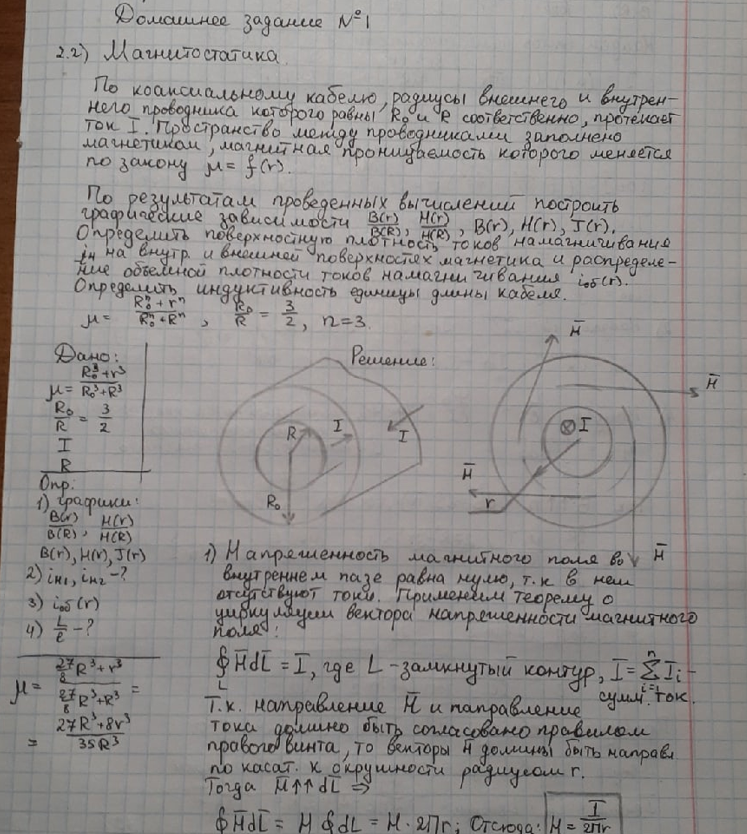 Домашнее задание №1
2.2) Магнитостатика
По коаксиальному кабелю, радиусы внешнего и внутрен-
него проводника которого равны R₀ и R соответственно, протекает
ток I. Пространство между проводниками заполнено
магнетиком, магнитная проницаемость которого меняется
по закону μ = f(r).
По результатам проведенных вычислений построить
графические зависимости B(r)/B(R), H(r)/H(R), B(r), H(r), J(r).
Определить поверхностную плотность токов намагничивания
iн на внутр. и внешней поверхностях магнетика и распределе-
ние объемной плотности токов намагничивания iоб(r).
Определить индуктивность единицы длины кабеля.
μ = (R₀ⁿ + rⁿ)/(R₀ⁿ + Rⁿ), R₀/R = 3/2, n = 3
Дано:
μ = (R₀³ + r³)/(R₀³ + R³)
R₀/R = 3/2
I
R
Опр:
1) графики:
B(r)/B(R), H(r)/H(R)
B(r), H(r), J(r)
2) iн₁, iн₂ - ?
3) iоб(r)
4) L/ℓ - ?
μ = (27/8 R³ + r³)/(27/8 R³ + R³) =
= (27R³ + 8r³)/(35R³)
Решение:
R
I
I
R₀
H̅
H̅
I
H̅
r
H̅
1) Напряженность магнитного поля во
внутреннем пазе равна нулю, т.к в нем
отсутствуют токи. Применим теорему о
циркуляции вектора напряженности магнитного
поля:
∮_L H̅dL̅ = I, где L - замкнутый контур, I = Σⁿᵢ₌₁ Iᵢ -
сумм. ток.
Т.к. направление H̅ и направление
тока должно быть согласовано правилом
правого винта, то векторы H̅ должны быть направл
по касат. к окружности радиусом r.
Тогда H̅↑↑dL̅ ⇒
∮H̅dL̅ = H∮dL = H·2πr; Отсюда: H = I/2πr